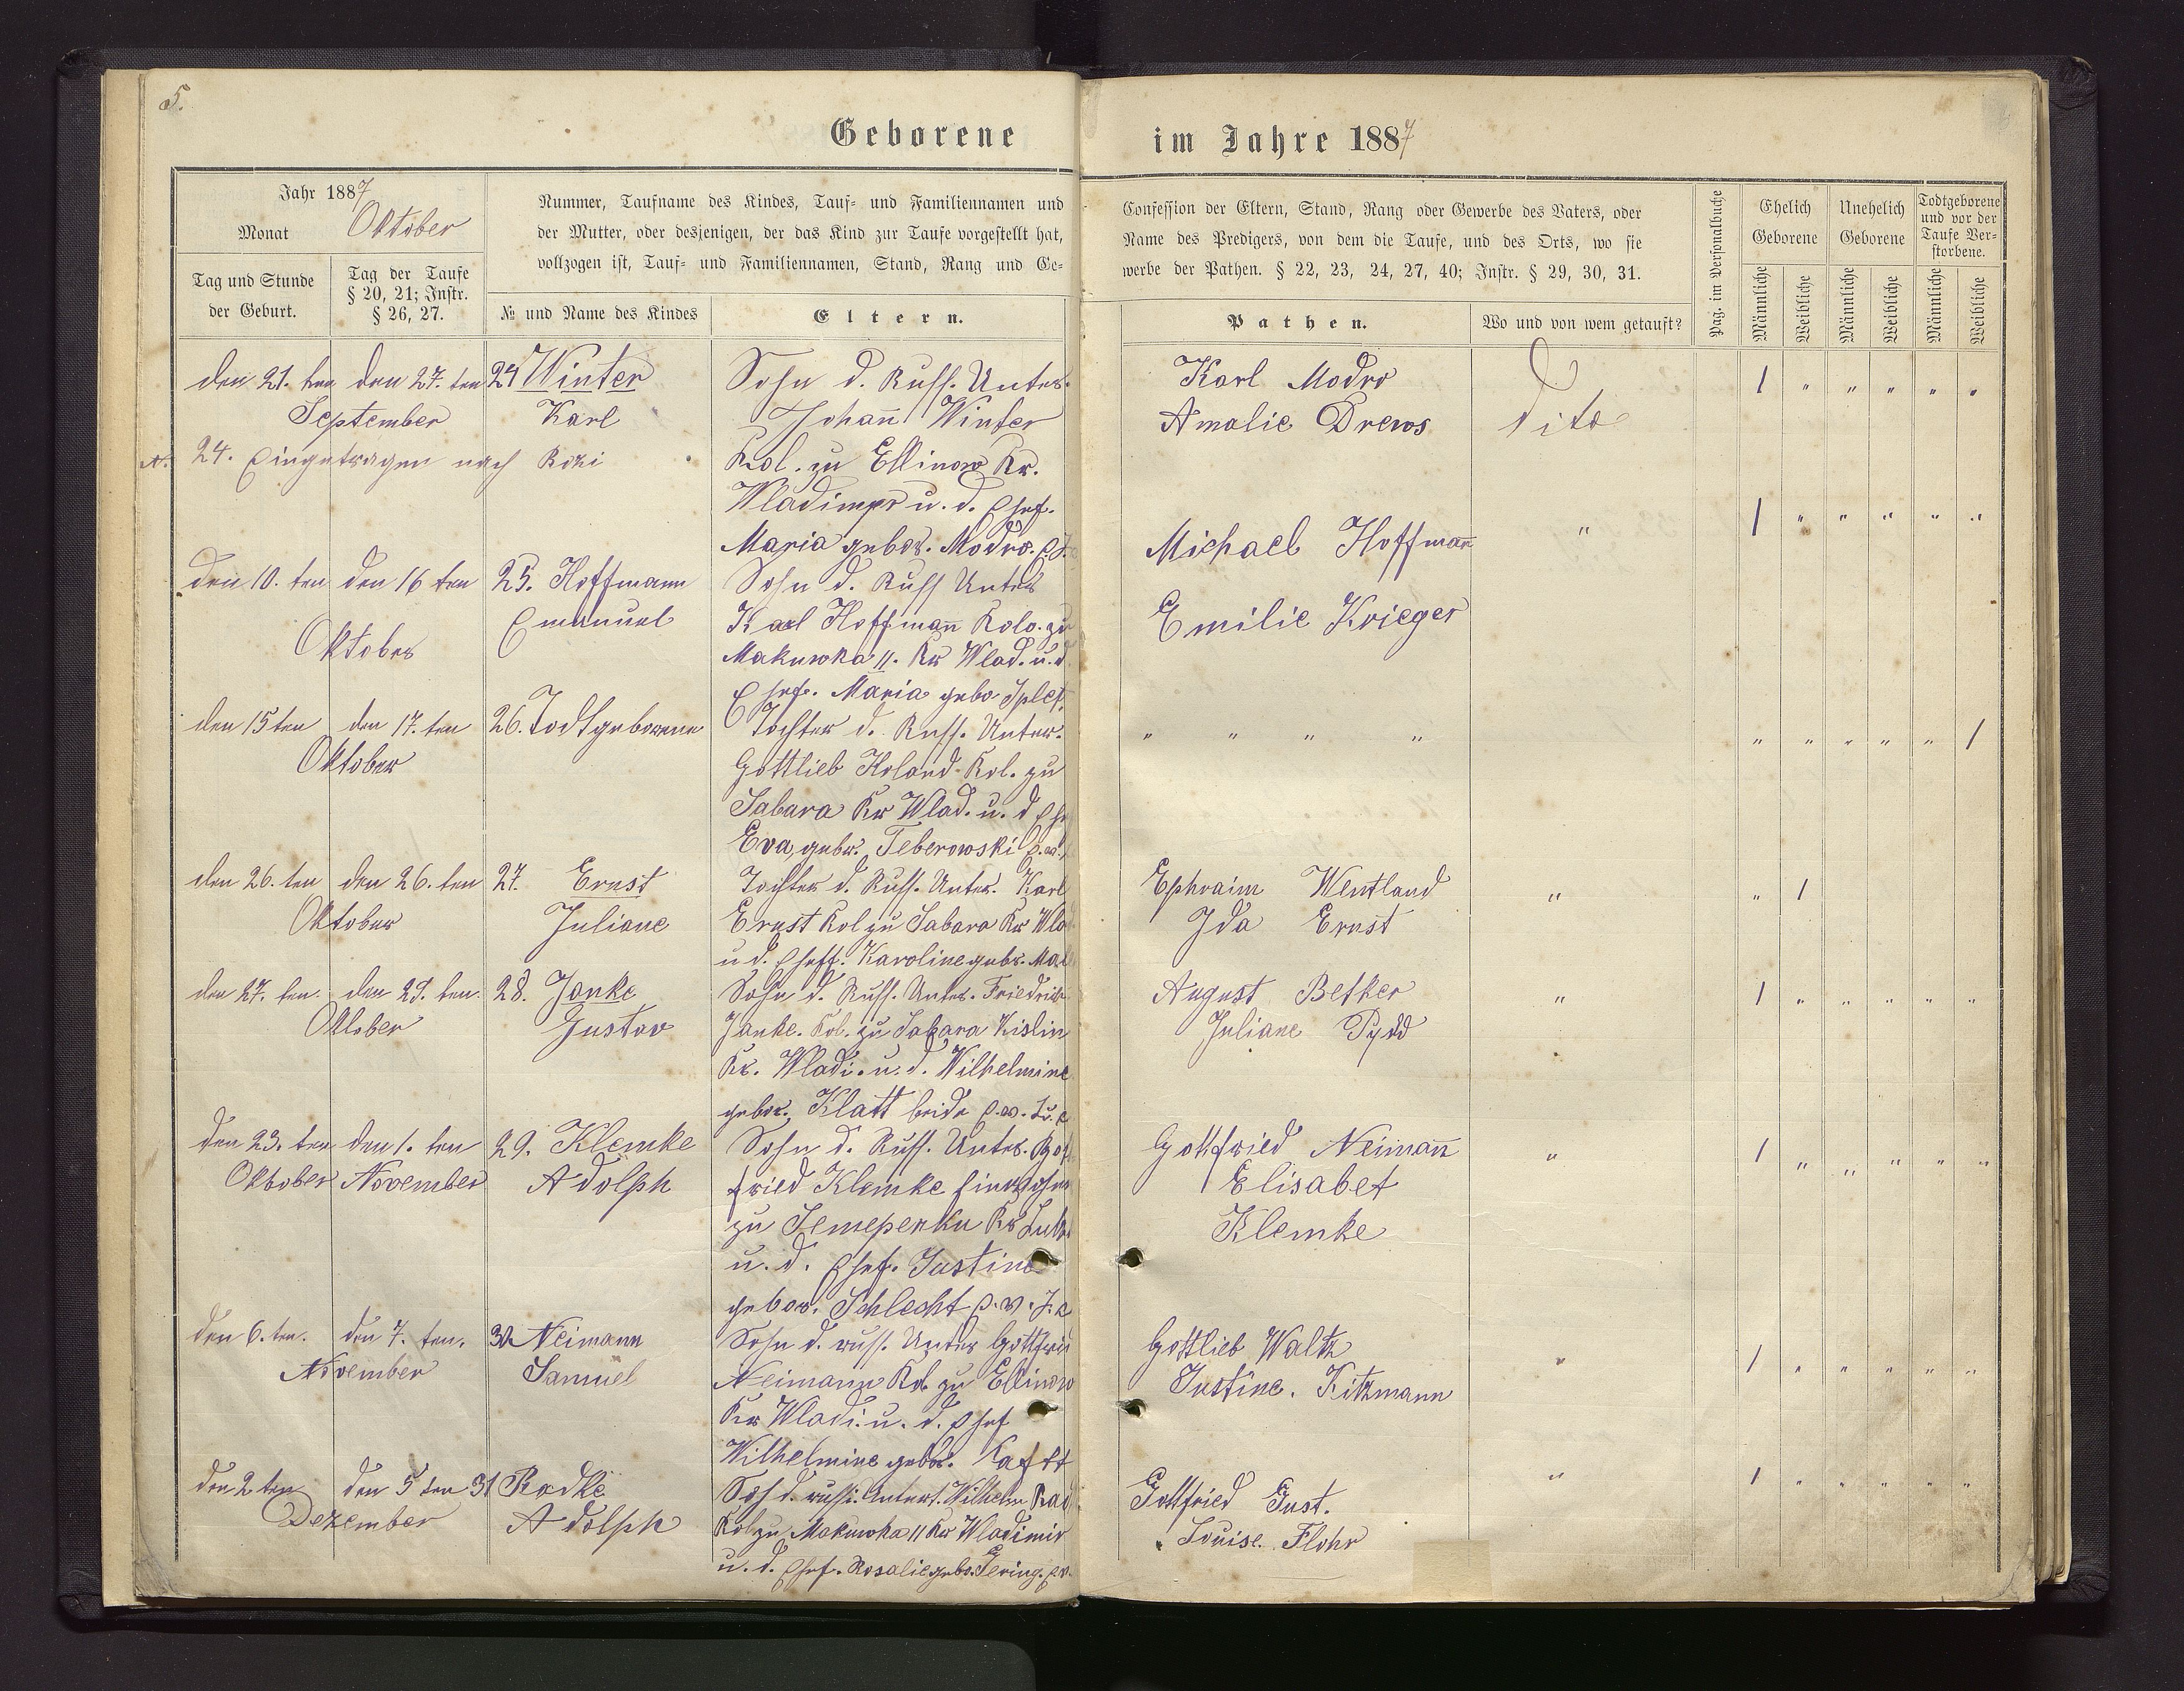 5.
Geborene
im Jahre 1887
Jahr 1887
Monat Oktober
Tag und Stunde
der Geburt.
Tag der Taufe
§ 20, 21; Instr.
§ 26, 27.
Nummer, Taufname des Kindes, Tauf- und Familiennamen und
der Mutter, oder desjenigen, der das Kind zur Taufe vorgestellt hat,
vollzogen ist, Tauf- und Familiennamen, Stand, Rang und Ge-
№ und Name des Kindes
Eltern.
Confession der Eltern, Stand, Rang oder Gewerbe des Vaters, oder
Name des Predigers, von dem die Taufe, und des Orts, wo sie
werbe der Pathen. § 22, 23, 24, 27, 40; Instr. § 29, 30, 31.
Pathen.
Wo und von wem getauft?
Pag. im Personalbuche
Ehelich
Geborene
Unehelich
Geborene
Todtgeborene
und vor der
Taufe Ver-
storbene.
Männliche
Weibliche
Männliche
Weibliche
Männliche
Weibliche
den 21. ten den 27. ten
September
24 Winter
Karl
24. Eingetragen nach Rozi
Sohn d. Russ. Unter.
Johann̄ Winter
Kol. zu Ellinow Kr.
u. d. Ehef.
Maria gebor. Modro.
Karl Modro
Amalie Drews
Dito
1 " " " " "
den 10. ten den 16 ten
Oktober
25. Hoffmann
Emanuel
Sohn d. Russ Unter
Karl Hoffman̄ Kolo. zu
Makuwka 11. Kr Wlad. u. d
Ehef. Maria gebo
Michael Hoffman̄
Emilie Krieger
"
1 " " " " "
den 15 ten den 17. ten
Oktober
26. Todtgeborene
Tochter d. Russ. Unter.
Gottlieb Roland Kol. zu
Sabara Kr Wlad. u. d
Eva, gebr. Teberowski
" " " "
" " " " " 1
den 26. ten den 26. ten
Oktober
27. Ernst
Juliane
Tochter d. Russ. Unter. Karl
Ernst Kol zu Sabara Kr
u d. Eheff. Karoline gebr.
Ephraim Wentland
Ida Ernst
"
" 1
den 27. ten. den 29. ten.
Oktober
28. Janke
Gustav
Sohn d. Russ. Unter. Friedrich
Janke. Kol. zu Sabara Kislin
Kr. Wladi. u. d. Wilhelmine
gebor. Klatt beide
August Betker
Juliane Pydd
"
1 " " " " "
den 23. ten den 1. ten
Oktober November
29. Klemke
Adolph
Sohn d. Russ. Unter. Got
fried Klemke Einwohner
zu Kr
u. d. Ehef. Justine
gebor. Schlecht
Gottfried Neiman̄
Elisabet
Klemke
"
1 " " " " "
den 6. ten. den 7. ten.
November
30 Neimann
Samuel
Sohn d. russ. Unter Gottfrie
Neimann Kol. zu Ellinow
Kr Wladi. u. d. Ehef
Wilhelmine gebor.
Gottlieb Waltz
Justine. Kitzmann
"
1 " " " " "
den 2 ten den 5 ten
Dezember
31 Radke
Adolph
Soh d. russi. Untert. Wilhelm Rad
Kol zu Makuwka 11 Kr Wladimir
u. d. Ehef. Rosalie gebo. Gering.
Gottfried Gust.
Louise. Flohr
"
1 " " " " "